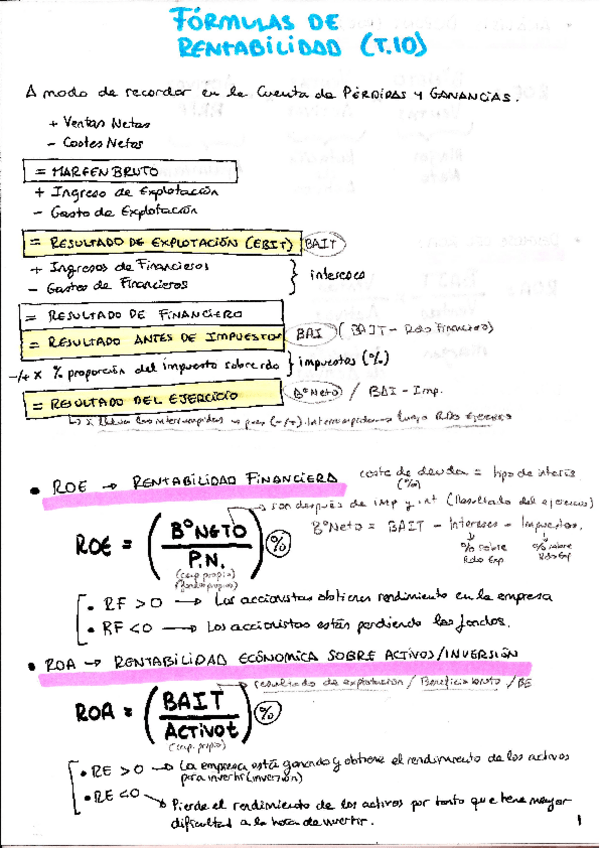 FÓRMULAS DE
RENTABILIDAD (T.10)
A modo de recordar en la Cuenta de PÉRDIDAS Y GANANCIAS.
+ Ventas Netas
- Costes Netos
= MARGEN BRUTO
+ Ingreso de Explotación
- Gasto de Explotación
= RESULTADO DE EXPLOTACIÓN (EBIT) BAIT
+ Ingresos de Financieros
- Gastos de Financieros
intereses
= RESULTADO DE FINANCIERO
= RESULTADO ANTES DE IMPUESTOS BAI (BAIT - Rdo Financiero)
-/+ x % proporción del impuesto sobre rdo } impuestos (%)
= RESULTADO DEL EJERCICIO BºNeto / BAI - Imp.
• ROE → RENTABILIDAD FINANCIERA
coste de deuda = tipo de interés
(%)
son después de imp y int (Resultado del ejercicio)
ROE = (BºNETO / P.N.) %
(fondos propios)
BºNeto = BAIT - Intereses - Impuestos.
% sobre % sobre
Rdo Exp Rdo Exp
• RF > 0 → Los accionistas obtienen rendimiento en la empresa
• RF < 0 → Los accionistas están perdiendo los fondos.
• ROA → RENTABILIDAD ECÓNOMICA SOBRE ACTIVOS/INVERSIÓN
resultado de explotación / Beneficio bruto / BE
ROA = (BAIT / ACTIVO t) %
• RE > 0 → La empresa está ganando y obtiene el rendimiento de los activos
para invertir (inversión)
• RE < 0 → Pierde el rendimiento de los activos por tanto que tiene mayor
dificultad a la hora de invertir.
1